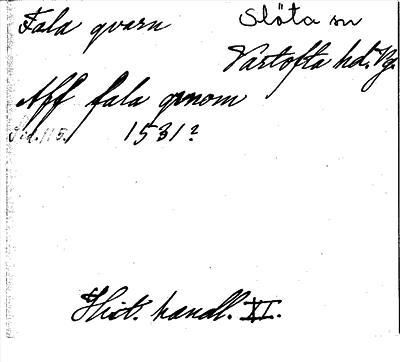 Fala qvarn
Slöta sn
Vartofta hd. Vg.
Aff fala qrnom
Sid. 115. 1531?
Hist. handl. XI.